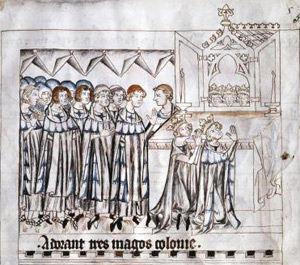 · Adorant tres magos colonie ·